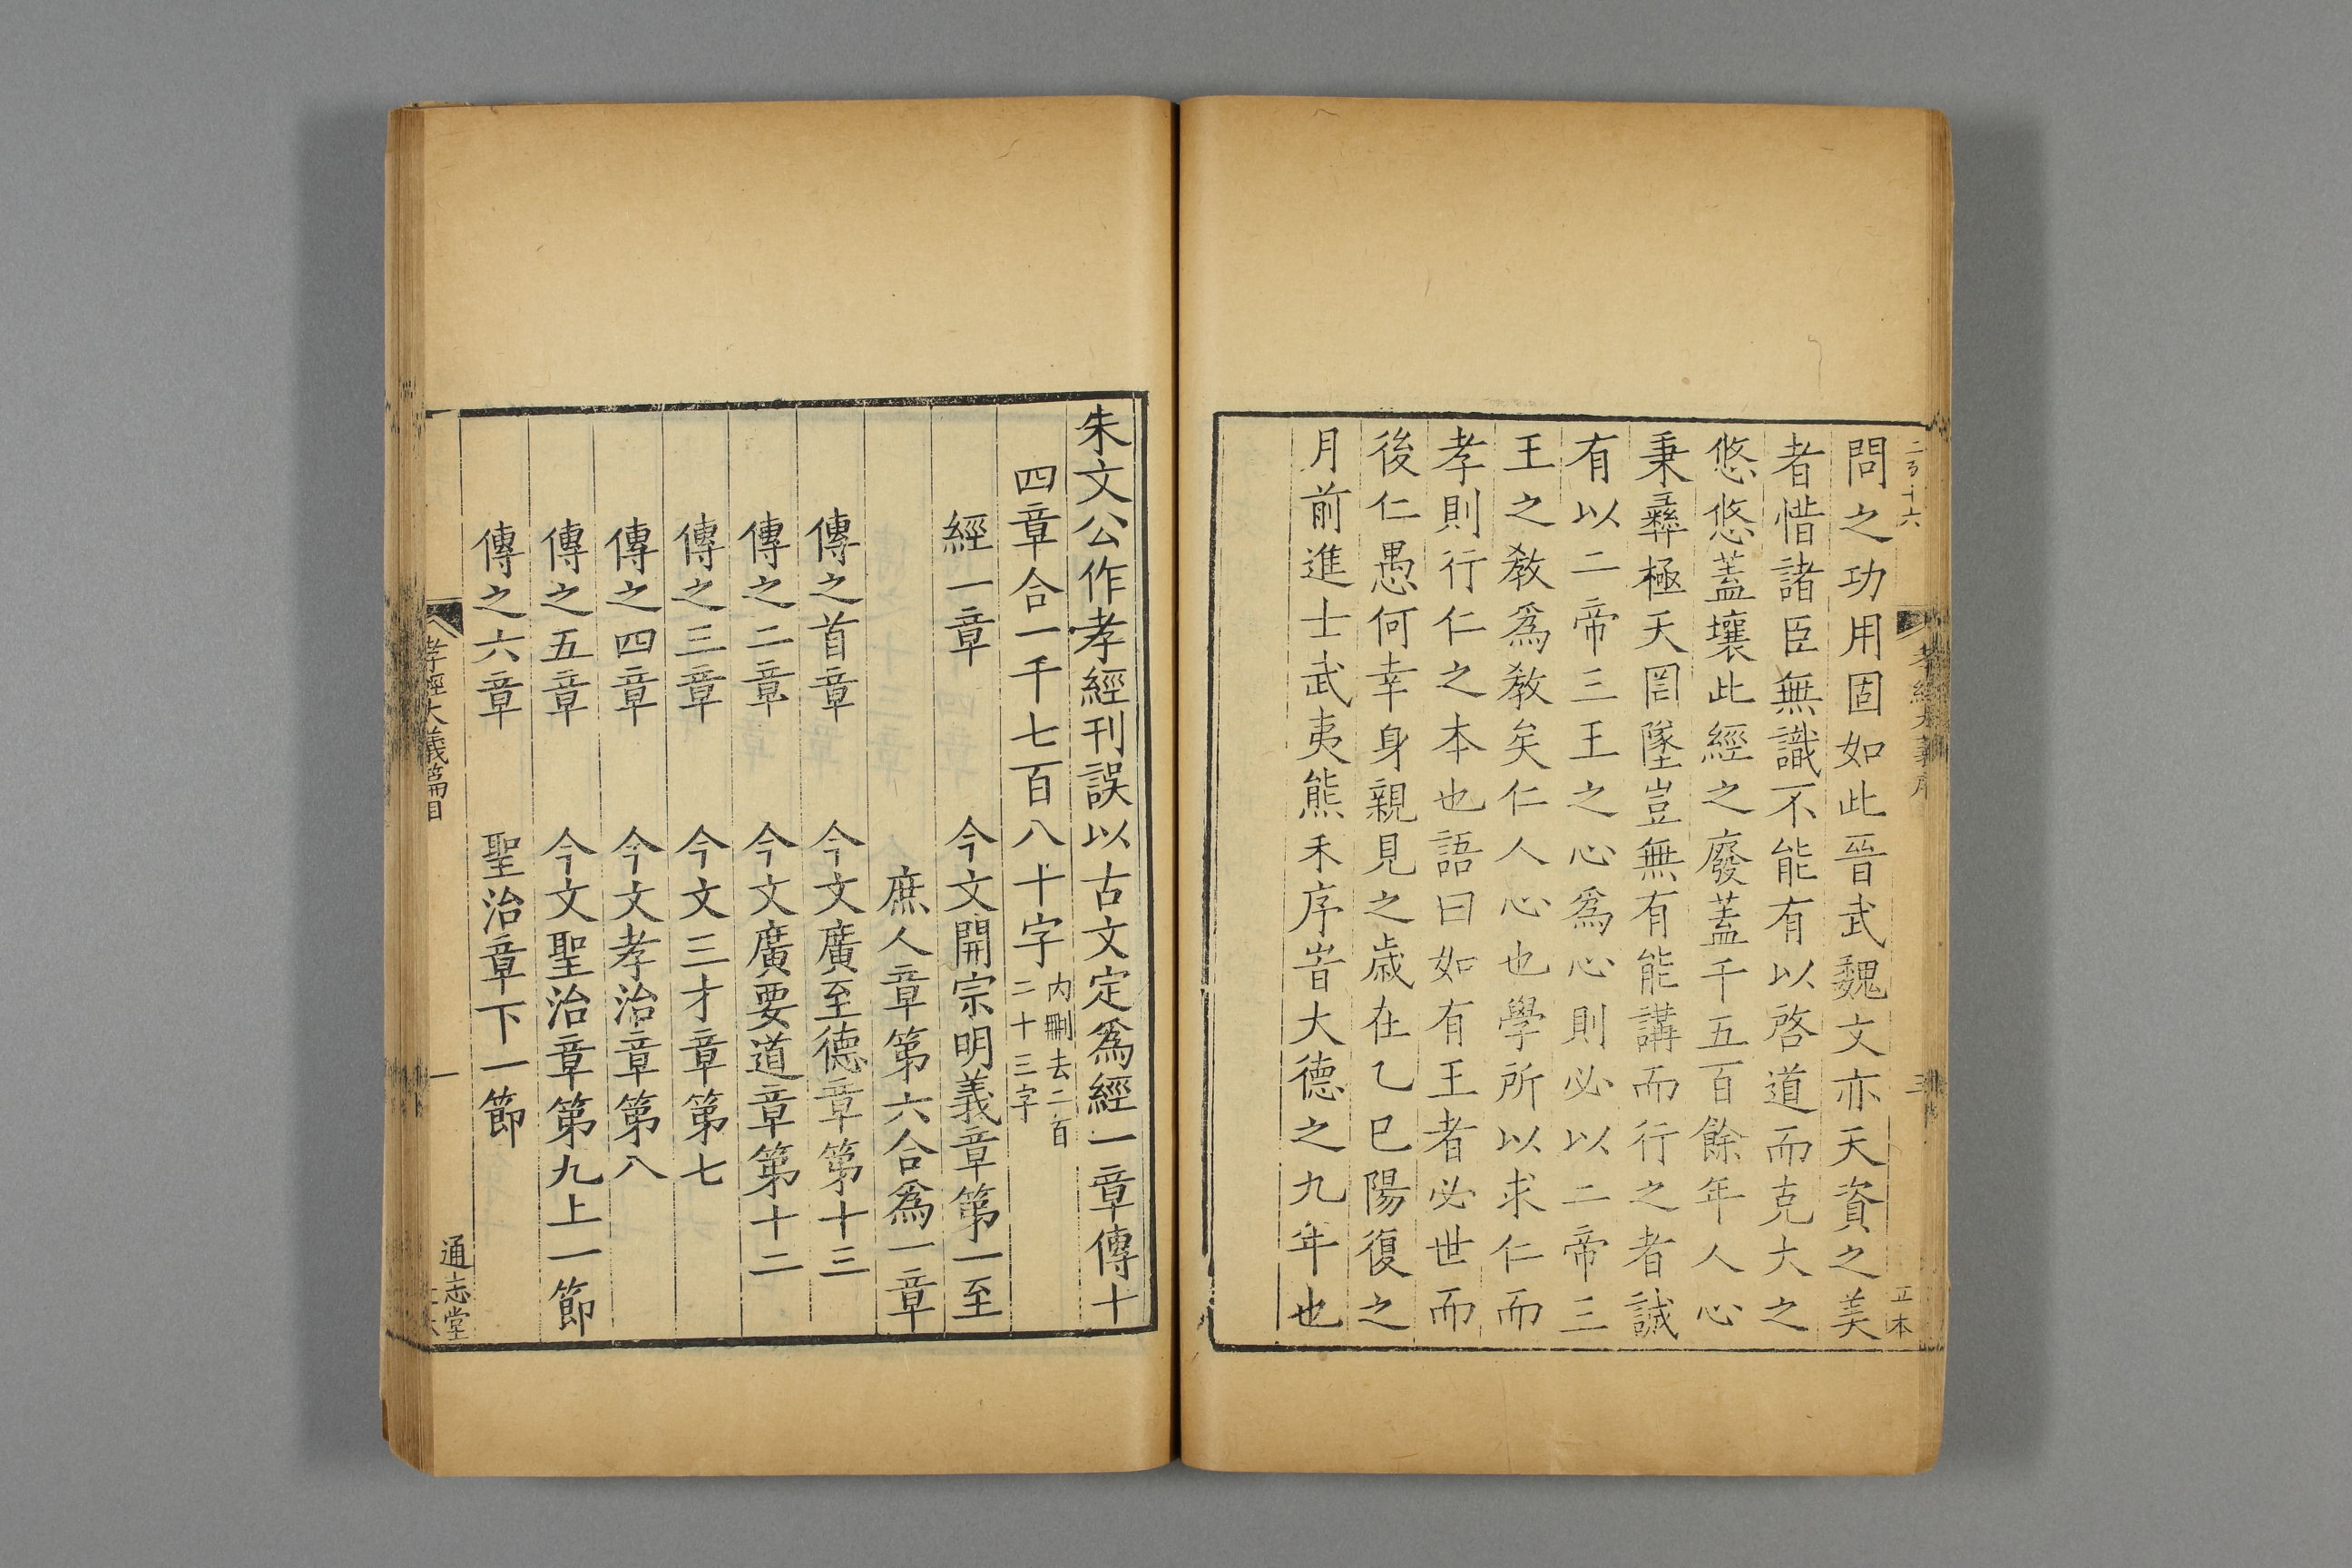 問之功用固如此晉武魏文亦天資之美
者惜諸臣無識不能有以啓道而克大之
悠悠蓋壤此經之廢蓋千五百餘年人心
秉彝極天罔墜豈無有能講而行之者誠
有以二帝三王之心爲心則必以二帝三
王之敎爲敎矣仁人心也學所以求仁而
孝則行仁之本也語曰如有王者必世而
後仁愚何幸身親見之歲在乙巳陽復之
月前進士武夷熊禾序旹大德之九年也
朱文公作孝經刊誤以古文定爲經一章傳十
四章合一千七百八十字內刪去二百
二十三字
經一章 今文開宗明義章第一至
庶人章第六合爲一章
傳之首章 今文廣至德章第十三
傳之二章 今文廣要道章第十二
傳之三章 今文三才章第七
傳之四章 今文孝治章第八
傳之五章 今文聖治章第九上一節
傳之六章 聖治章下一節
孝經大義篇目 一 通志堂